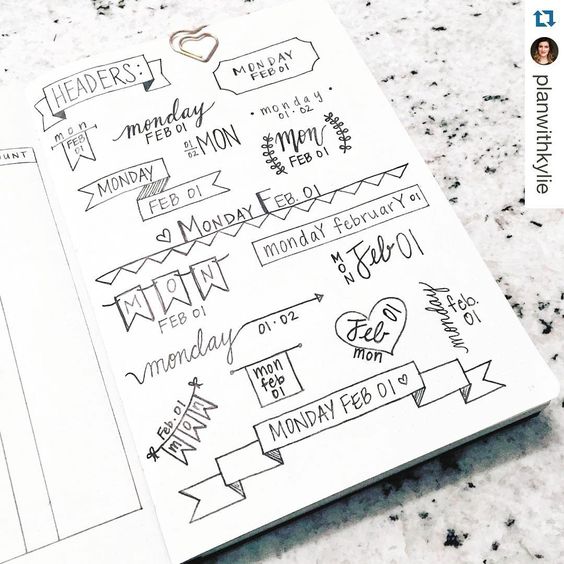 HEADERS:
MONDAY
FEB 01
mon
FEB
01
monday
FEB 01
01
02
MON
monday
01·02
Mon
FEB 01
MONDAY
FEB 01
MONDAY FEB. 01
mondaY februarY 01
MON
FEB 01
MON
Feb 01
monday
01·02
mon
feb
01
Feb 01
mon
monday
feb.
01
Feb. 01
MON
MONDAY FEB 01
OUNT
planwithkylie